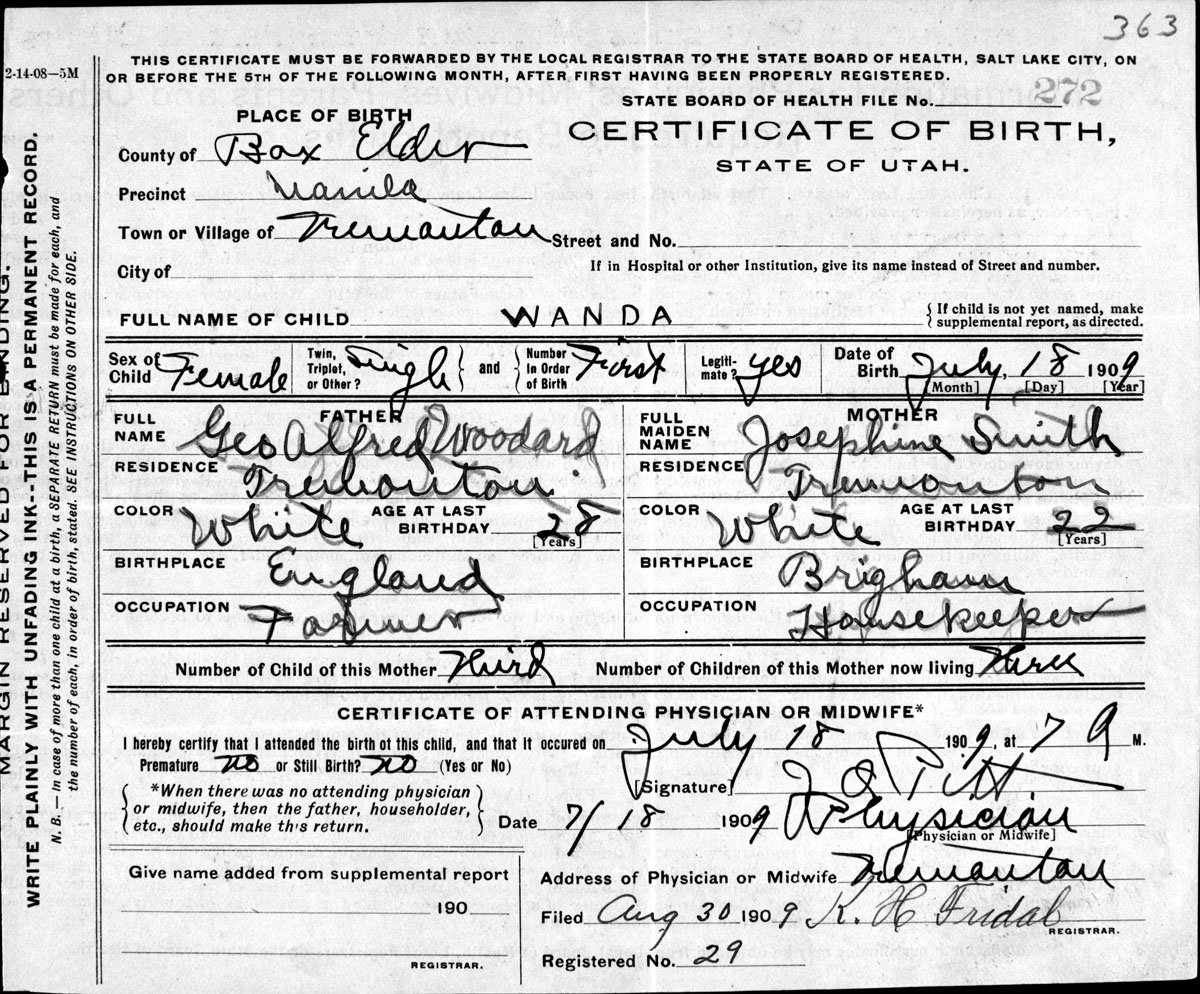 363
2-14-08—5M
THIS CERTIFICATE MUST BE FORWARDED BY THE LOCAL REGISTRAR TO THE STATE BOARD OF HEALTH, SALT LAKE CITY, ON
OR BEFORE THE 5TH OF THE FOLLOWING MONTH, AFTER FIRST HAVING BEEN PROPERLY REGISTERED.
STATE BOARD OF HEALTH FILE No. 272
PLACE OF BIRTH
CERTIFICATE OF BIRTH,
STATE OF UTAH.
County of Box Elder
Precinct Manila
Town or Village of Tremonton Street and No.
City of
If in Hospital or other Institution, give its name instead of Street and number.
FULL NAME OF CHILD WANDA { If child is not yet named, make supplemental report, as directed.
Sex of Child Female Twin, Triplet, or Other? Single } and { Number In Order of Birth First Legiti-mate? yes Date of Birth July, 18 1909
[Month] [Day] [Year]
FATHER MOTHER
FULL NAME Geo Alfred Woodard FULL MAIDEN NAME Josephine Smith
RESIDENCE Tremonton RESIDENCE Tremonton
COLOR White AGE AT LAST BIRTHDAY 28 [Years] COLOR White AGE AT LAST BIRTHDAY 22 [Years]
BIRTHPLACE England BIRTHPLACE Brigham
OCCUPATION Farmer OCCUPATION Housekeeper
Number of Child of this Mother Third Number of Children of this Mother now living three
CERTIFICATE OF ATTENDING PHYSICIAN OR MIDWIFE*
I hereby certify that I attended the birth of this child, and that it occured on July 18 1909, at 7 9 M.
Premature no or Still Birth? no (Yes or No)
[Signature]
*When there was no attending physician
or midwife, then the father, householder,
etc., should make this return.
Date 7/18 1909 Physician
[Physician or Midwife]
Give name added from supplemental report
190
REGISTRAR.
Address of Physician or Midwife Tremonton
Filed Aug 30 1909 K. H Fridal
REGISTRAR.
Registered No. 29
MARGIN RESERVED FOR BINDING.
WRITE PLAINLY WITH UNFADING INK--THIS IS A PERMANENT RECORD.
N. B.— In case of more than one child at a birth, a SEPARATE RETURN must be made for each, and
the number of each, in order of birth, stated. SEE INSTRUCTIONS ON OTHER SIDE.